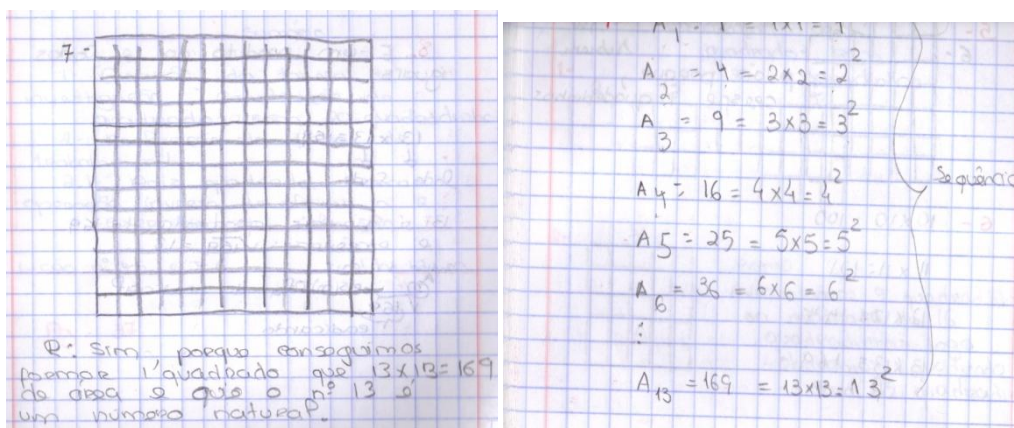 7-
R: Sim porque conseguimos
formar 1 quadrado que 13×13=169
de área e que o nº 13 é
um número natural.
A1 = 1 = 1×1=1
A2 = 4 = 2×2=2²
A3 = 9 = 3×3=3²
A4 = 16 = 4×4=4²
A5 = 25 = 5×5=5²
A6 = 36 = 6×6=6²
⋮
A13 = 169 = 13×13=13²
Sequênci